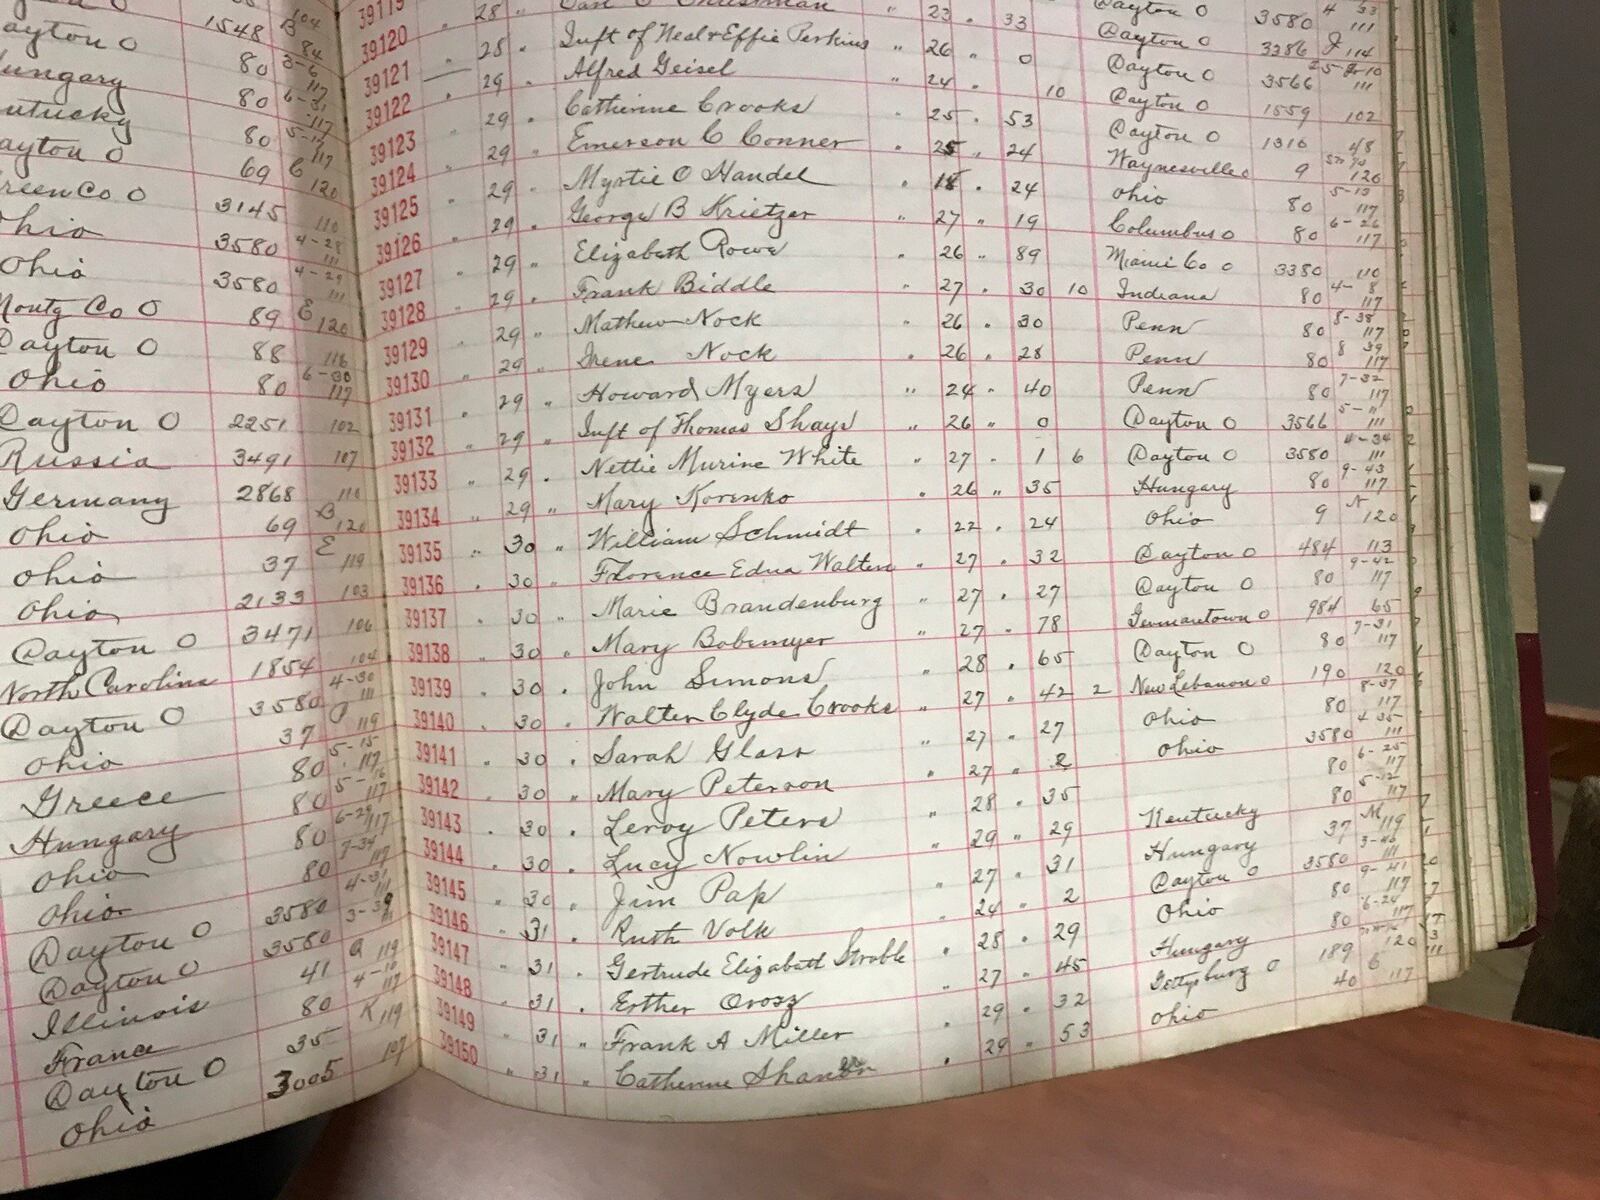 ayton O 1548 B 104
ungary 80 3-6 117
ntucky 80 6-31 117
ayton O 80 5-17 117
reen Co O 69 C 120
hio 3145 110
Ohio 3580 4-28 111
Montg Co O 3580 4-29 111
Dayton O 89 E 120
Ohio 88 116
Dayton O 80 6-30 117
Russia 2251 102
Germany 3491 107
Ohio 2868 110
Ohio 69 B 120
Ohio 37 E 119
Dayton O 2133 103
North Carolina 3471 106
Dayton O 1854 104
Ohio 3580 4-30 111
Greece 37 119
Hungary 80 5-15 117
Ohio 80 5-16 117
Ohio 80 6-29 117
Dayton O 80 7-34 117
Dayton O 3580 4-31 111
Illinois 3580 3-39 111
France 41 119
Dayton O 80 4-10 117
Ohio 35 K 119
3005 107
39119 " 28 " " 23 " 33 Dayton O 3580
39120 " 28 " Inft of Neal & Effie Perkins " 26 " 0 Dayton O 3386 114
39121 29 " Alfred Geisel " 24 " 10 Dayton O 3566 111
39122 " 29 " Catherine Crooks " 25 " 53 Dayton O 1559 102
39123 " 29 " Emerson C Conner " 25 " 24 Dayton O 1316
39124 " 29 " Myrtie O Handel " 18 " 24 Waynesville O 9 120
39125 " 29 " George B Krietzer " 27 " 19 Ohio 80 5-13 117
39126 " 29 " Elizabeth Rowe " 26 " 89 Columbus O 80 6-26 117
39127 " 29 " Frank Biddle " 27 " 30 10 Miami Co O 3380 110
39128 " 29 " Mathew Nock " 26 " 30 Indiana 80 4-8 117
39129 " 29 " Irene Nock " 26 " 28 Penn 80 8-38 117
39130 " 29 " Howard Myers " 24 " 40 Penn 80 8 39 117
39131 " 29 " Inft of Thomas Shays " 26 " 0 Penn 80 7-32 117
39132 " 29 " Nettie Murine White " 27 " 1 6 Dayton O 3566 5-11 111
39133 " 29 " Mary Korenko " 26 " 35 Dayton O 3580 4-34 111
39134 " 30 " William Schmidt " 22 " 24 Hungary 80 9-43 117
39135 " 30 " Florence Edna Walters " 27 " 32 Ohio 9 N 120
39136 " 30 " Marie Brandenburg " 27 " 27 Dayton O 484 113
39137 " 30 " Mary Bobemyer " 27 " 78 Dayton O 80 9-42 117
39138 " 30 " John Simons " 28 " 65 Germantown O 984 65
39139 " 30 " Walter Clyde Crooks " 27 " 42 2 Dayton O 80 7-31 117
39140 " 30 " Sarah Glass " 27 " 27 New Lebanon O 190 120
39141 " 30 " Mary Peterson " 27 " 2 Ohio 80 8-37 117
39142 " 30 " Leroy Peters " 28 " 35 Ohio 3580 4 35 111
39143 " 30 " Lucy Nowlin " 29 " 29 80 6-25 117
39144 " 30 " Jim Pap " 27 " 31 Kentucky 80 5-12 117
39145 " 31 " Ruth Volk " 24 " 2 Hungary 37 M 119
39146 " 31 " Gertrude Elizabath Stroble " 28 " 29 Dayton O 3580 3-40 111
39147 " 31 " Esther Orosz " 27 " 45 Ohio 80 9-41 117
39148 " 31 " Frank A Miller " 29 " 32 Hungary 80 6-24 117
39149 " 31 " Catherine " 29 " 53 Gettysburg O 189 120
39150 Ohio 40 117